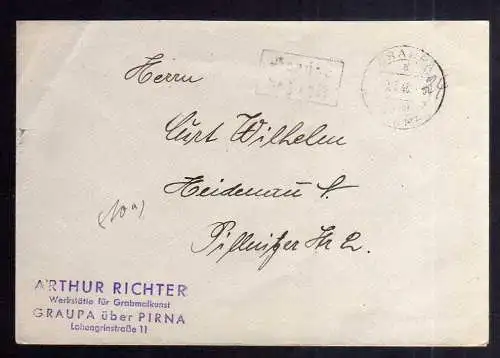 Herrn
Curt Wilhelm
Heidenau S.
Pillnitzer Str 2.
(10a)
ARTHUR RICHTER
Werkstätte für Grabmalkunst
GRAUPA über PIRNA
Lohengrinstraße 11